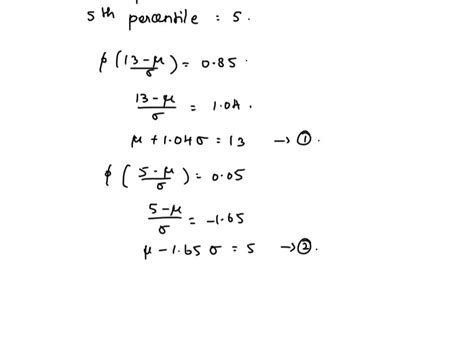 5th percentile : 5.
φ(13-μ/σ) = 0.85.
13-μ/σ = 1.04.
μ + 1.04σ = 13 → ①.
φ(5-μ/σ) = 0.05
5-μ/σ = -1.65
μ - 1.65 σ = 5 → ②.